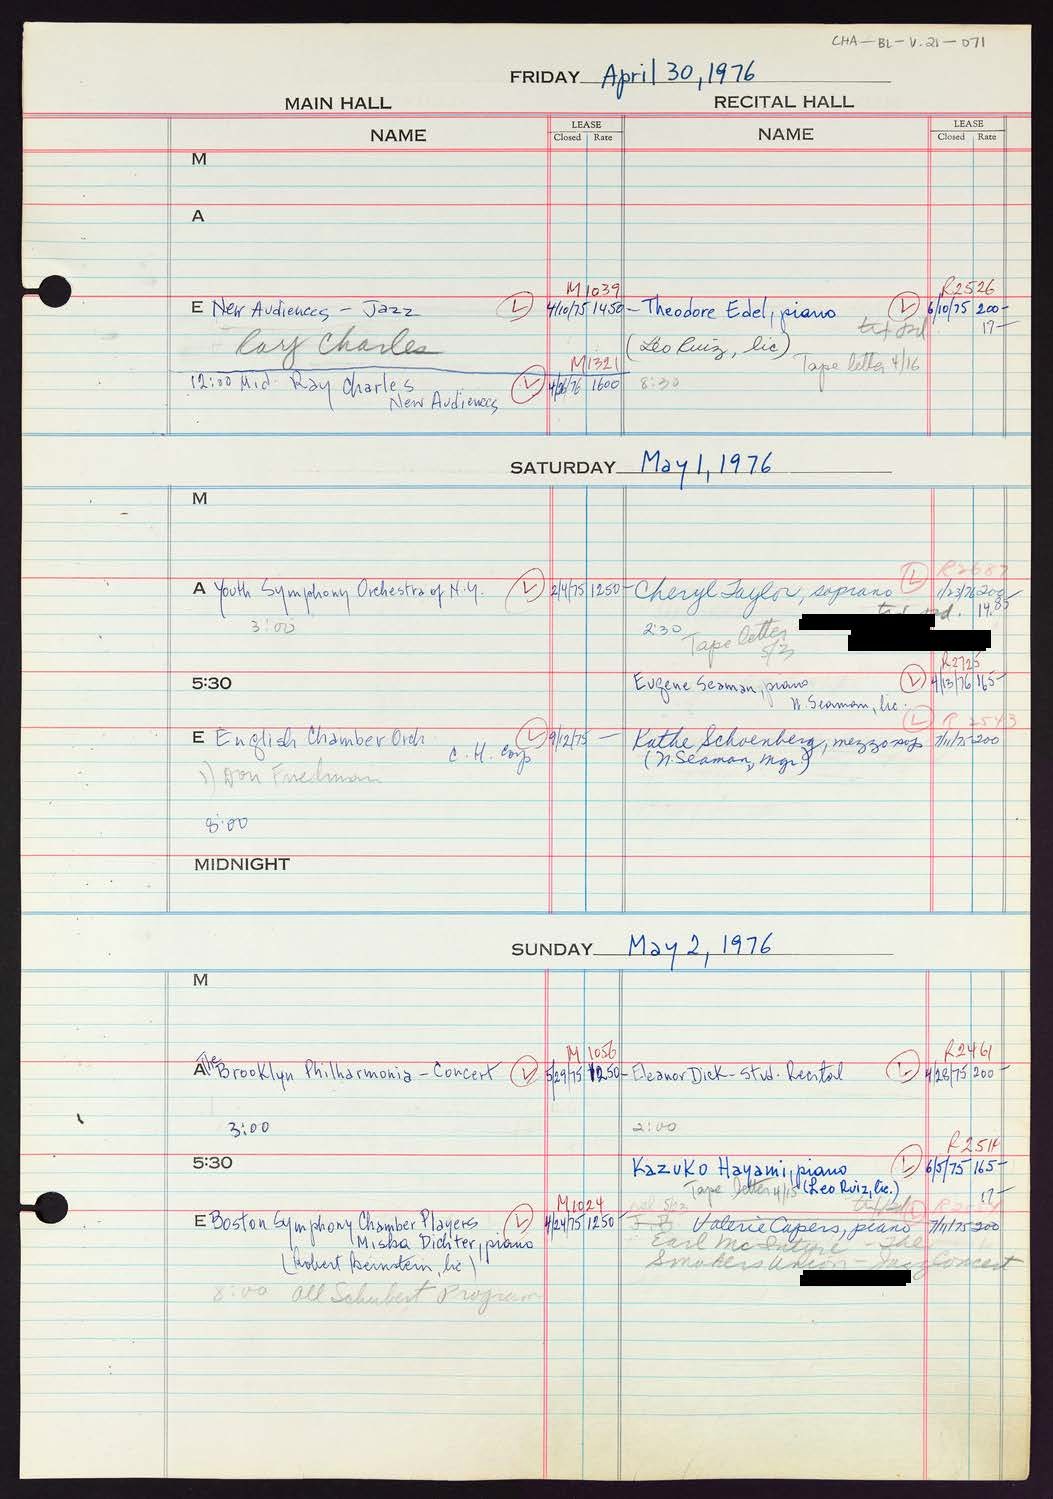 CHA-BL-V.21-071
FRIDAY April 30, 1976
MAIN HALL RECITAL HALL
NAME LEASE Closed Rate NAME LEASE Closed Rate
M
A
M1039 R2526
E New Audiences - Jazz L 4/10/75 1450- Theodore Edel, piano L 6/10/75 200-
17-
Ray Charles (Leo Ruiz, lic)
M1321 Tape letter 4/16
12:00 Mid. Ray Charles L 4/26/76 1600 8:30
New Audiences
SATURDAY May 1, 1976
M
R2687
A Youth Symphony Orchestra of N.Y. L 2/4/75 1250- Cheryl Taylor, soprano L 1/23/76 200
14.85
3:00 2:30 Tape letter
5/3
R2725
5:30 Eugene Seaman, piano L 4/13/76 165-
N. Seaman, lic.
R2543
E English Chamber Orch L 9/12/75 - Kathe Schoenberg, mezzo sop L 7/11/75 200
C. H. Corp (N. Seaman, Mgr.)
1) Don Friedman
8:00
MIDNIGHT
SUNDAY May 2, 1976
M
M 1056 R2461
A The Brooklyn Philharmonia - Concert L 5/29/75 1250- Eleanor Dick - Stud. Recital L 4/28/75 200-
3:00 2:00
R2511
5:30 Kazuko Hayami, piano L 6/5/75 165-
Tape letter 4/15 (Leo Ruiz, lic.) 17-
M1024
E Boston Symphony Chamber Players L 4/24/75 1250- J.B. Valerie Capers, piano L 7/11/75 200
Misha Dichter, piano Earl McIntyre - The
(Robert Bernstein, lic) Smokers Union - Jazz Concert
8:00 All Schubert Program